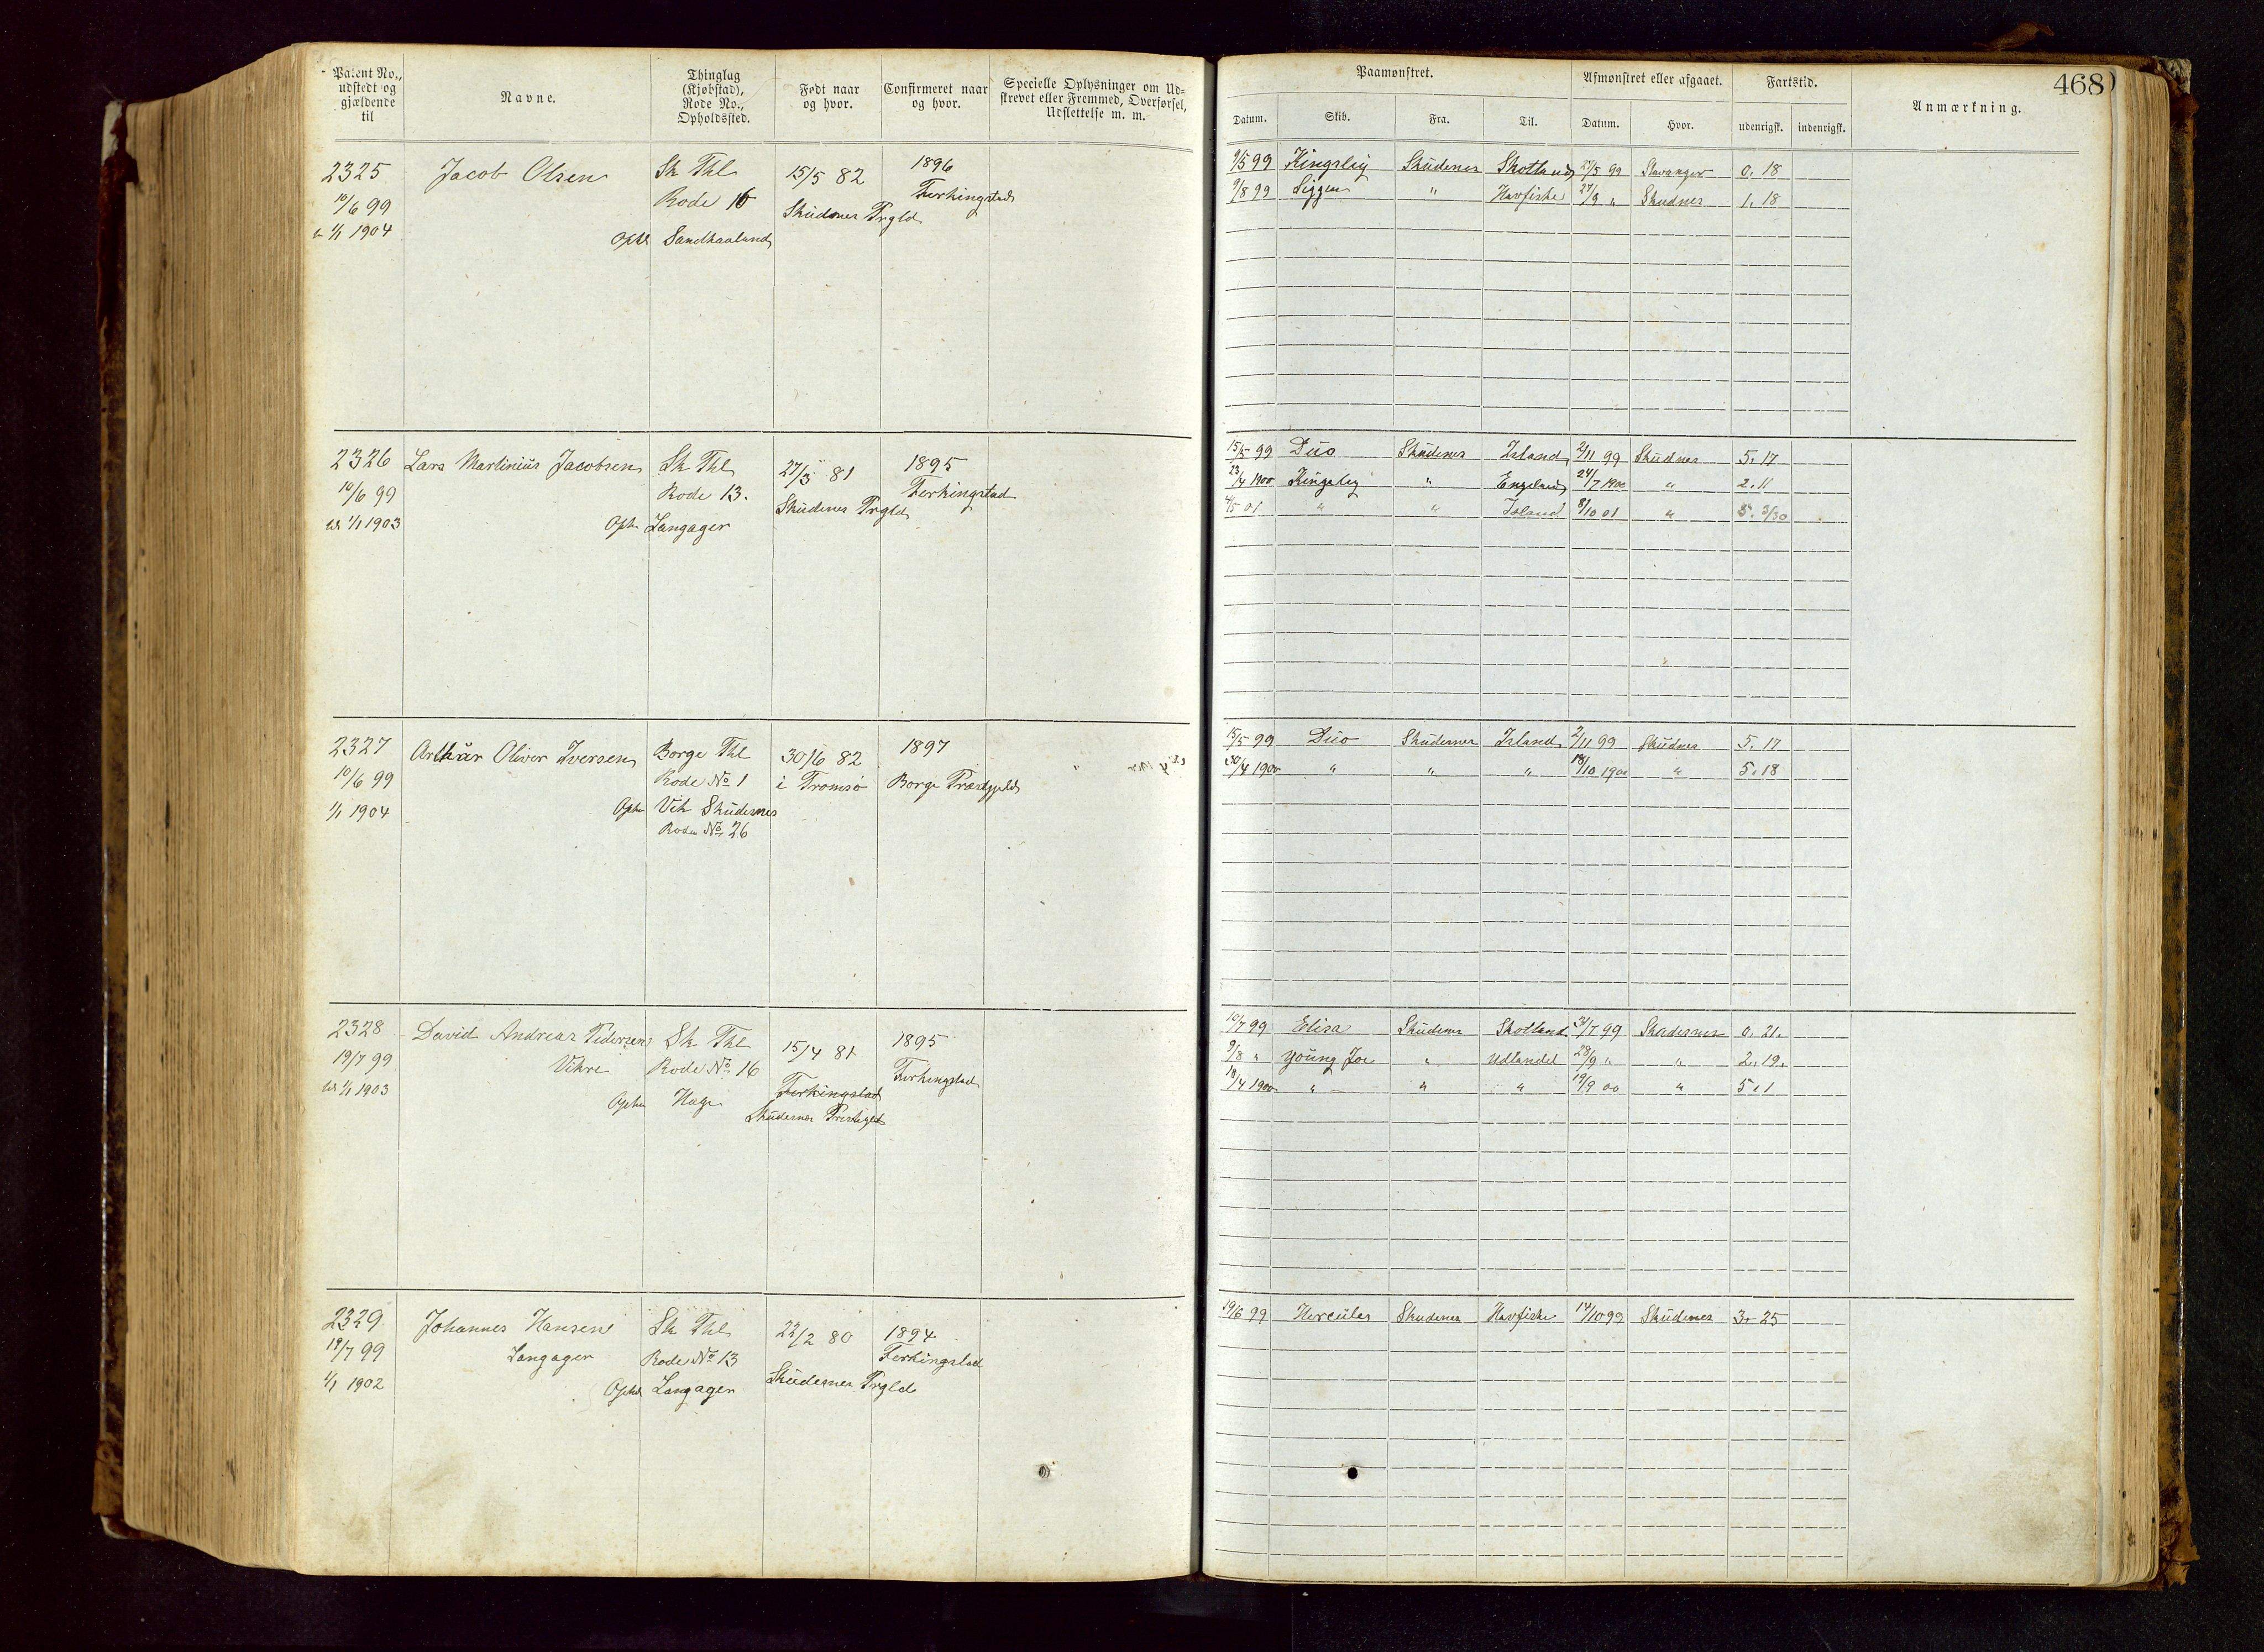 Patent No., udstedt og gjældende til
Navne.
Thinglag (Kjøbstad), Rode No., Opholdssted.
Født naar og hvor.
Confirmeret naar og hvor.
Specielle Oplysninger om Udskrevet eller Fremmed, Overførsel, Udslettelse m. m.
Paamønstret.
Afmønstret eller afgaaet.
Fartstid.
Anmærkning.
468
Datum. Skib. Fra. Til. Datum. Hvor. udenrigsk. indenrigsk.
2325 Jacob Olsen Sk Thl 15/5 82 1896
10/6 99 Rode 16 Skudenes Prgld Ferkingstad
1/1 1904 Oph Sandhaaland
9/5 99 Kingsley Skudenes Skotland 27/5 99 Stavanger 0. 18
9/8 99 Siggen " Havfiske 27/9 " Skudnes 1. 18
2326 Lars Martinius Jacobsen Sk Thl 27/3 81 1895
10/6 99 Rode 13. Skudenes Prgld Ferkingstad
til 1/1 1903 Oph Langager
15/5 99 Duo Skudenes Island 2/11 99 Skudnes 5. 17
23/4 1900 Kingsley " England 24/7 1900 " 2. 11
4/5 01 " " Island 8/10 01 " 5. 3/30
2327 Arthur Oliver Iversen Borge Thl 30/6 82 1897
10/6 99 Rode No 1 i Tromsø Borge Præstgjeld
1/1 1904 Oph Vik Skudesnes
Rode No 26
15/5 99 Duo Skudesnes Island 2/11 99 Skudnes 5. 17
30/4 1900 " " " 18/10 1900 " 5. 18
2328 David Andreas Pedersen Sk Thl 15/4 81 1895
19/7 99 Vikre Rode No 16 Ferkingstad Ferkingstad
til 1/1 1903 Oph Hage Skudesnes Prestegld
10/7 99 Elisa Skudenes Skotland 31/7 99 Skudesnes 0. 21.
9/8 " Young Joe " Udlandet 28/9 " " 2. 19.
18/4 1900 " " " 19/9 00 " 5. 1
2329 Johannes Hansen Sk Thl 22/2 80 1894
19/7 99 Langager Rode No 13 Skudesnes Prgld Ferkingstad
1/1 1902 Oph Langager
19/6 99 Hercules Skudenes Havfiske 14/10 99 Skudenes 3. 25